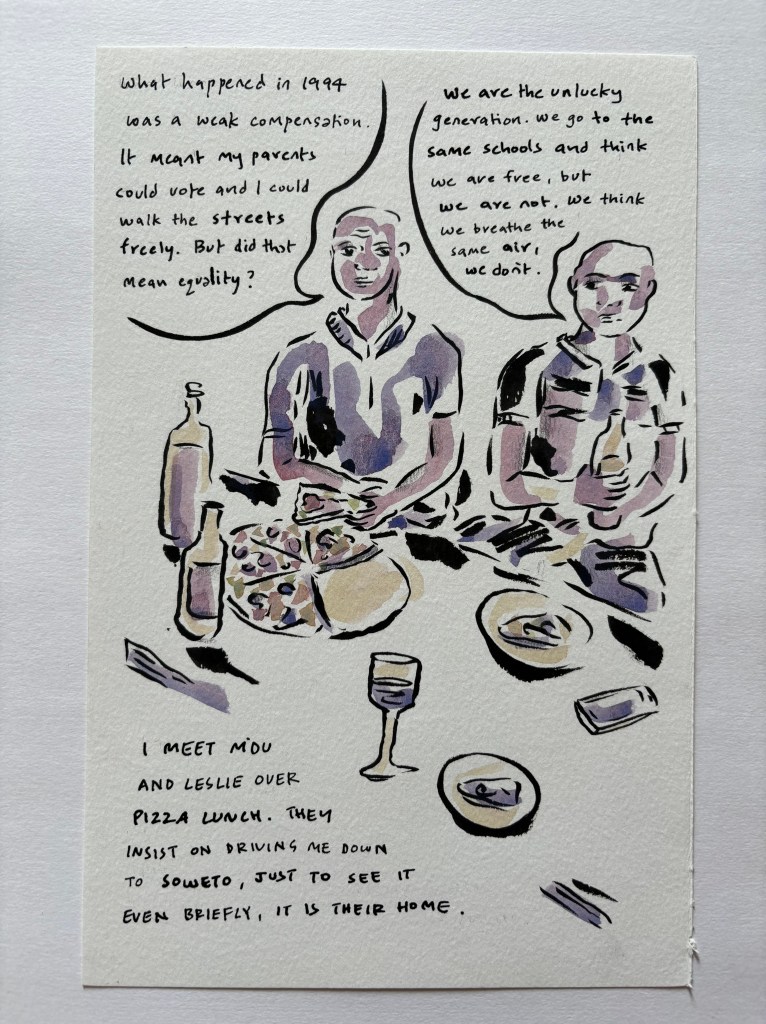 What happened in 1994
was a weak compensation.
It meant my parents
could vote and I could
walk the streets
freely. But did that
mean equality?
We are the unlucky
generation. We go to the
same schools and think
we are free, but
we are not. We think
we breathe the
same air,
we don't.
I MEET M'DU
AND LESLIE OVER
PIZZA LUNCH. THEY
INSIST ON DRIVING ME DOWN
TO SOWETO, JUST TO SEE IT
EVEN BRIEFLY, IT IS THEIR HOME.